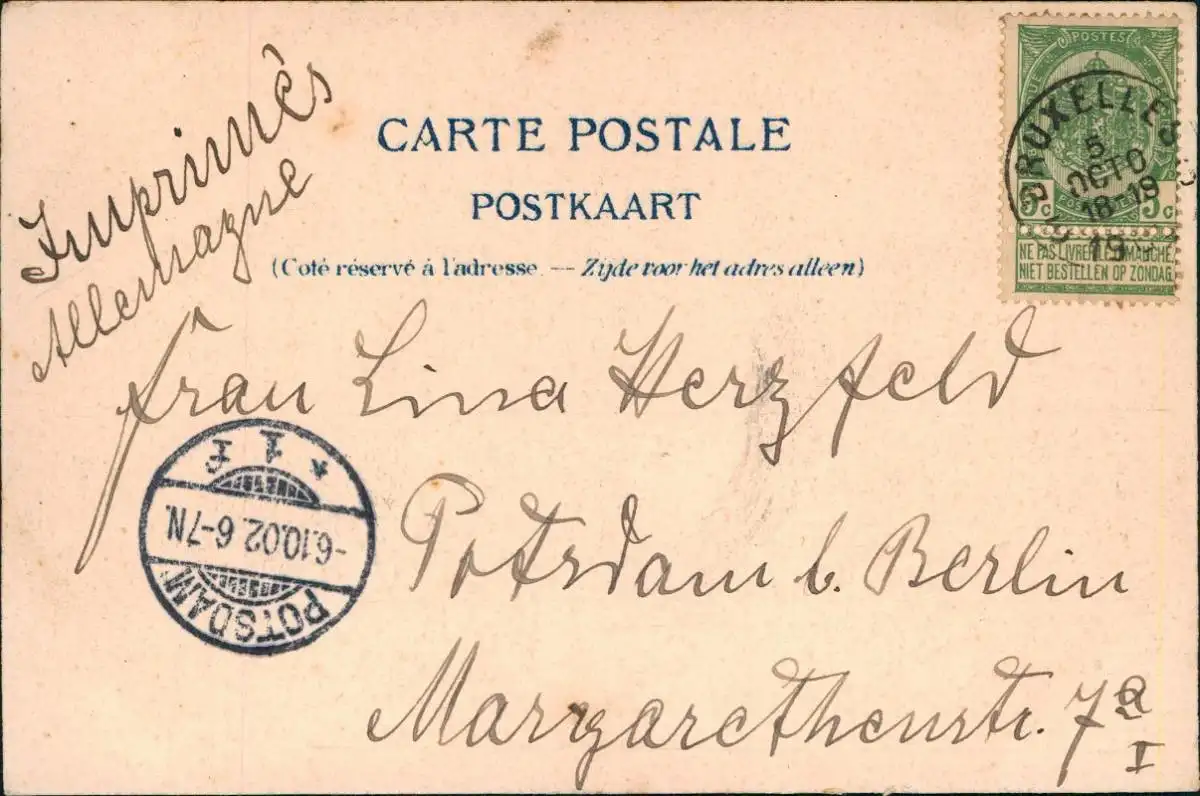 Imprimês
Allemagne
CARTE POSTALE
POSTKAART
(Coté réservé à l'adresse. — Zijde voor het adres alleen)
POSTES
5c 5c
NE PAS LIVRER LE DIMANCHE
NIET BESTELLEN OP ZONDAG
BRUXELLES
5
OCTO
18-19
19
Frau Lina Herzfeld
Potsdam b. Berlin
Margarethenstr. 7a
I
POTSDAM
-6.10.02. 6-7N.
* 1 f